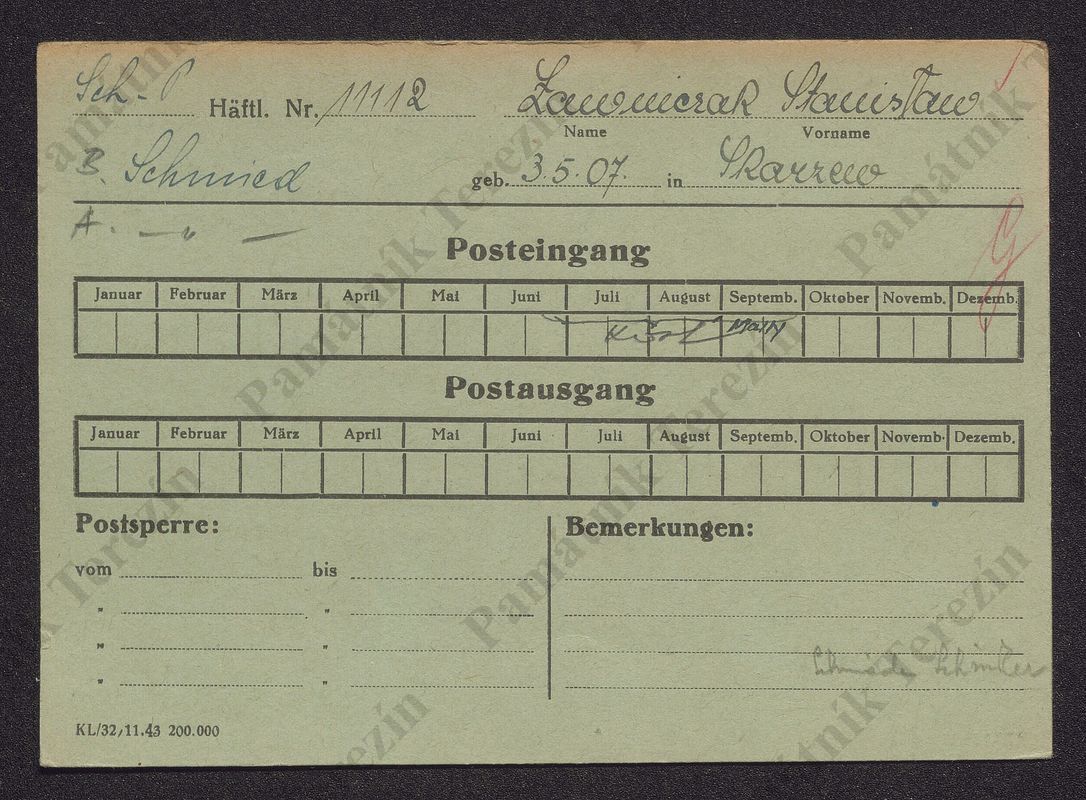 Sch. P Häftl. Nr. 11112 Zawniczak Stanisław
Name Vorname
B. Schmied geb. 3.5.07. in Skarzew
A. — " —
Posteingang
Januar Februar März April Mai Juni Juli August Septemb. Oktober Novemb. Dezemb.
Postausgang
Januar Februar März April Mai Juni Juli August Septemb. Oktober Novemb. Dezemb.
Postsperre: Bemerkungen:
vom bis
" "
" "
" "
KL/32/11.43 200.000
Památník Terezín